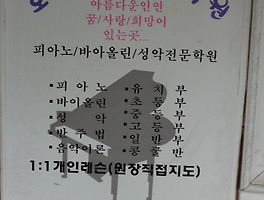 아름다운인연
꿈/사랑/희망이
있는곳...
피아노/바아올린/성악전문학원
피아노
바이올린
성악
반주법
음악이론
유치부
초등부
중등부
고등부
일반부
콩쿨반
1:1개인레슨(원장직접지도)